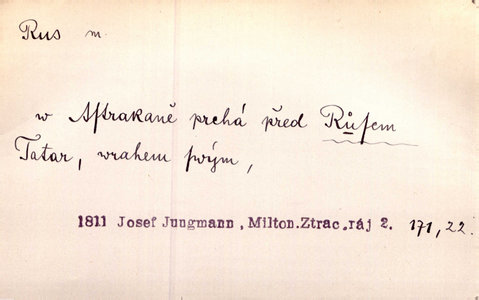 Rus m.
w Aſtrakaně prchá před Růſem
Tatar, wrahem ſwým,
1811 Josef Jungmann, Milton.Ztrac.ráj 2. 171, 22.